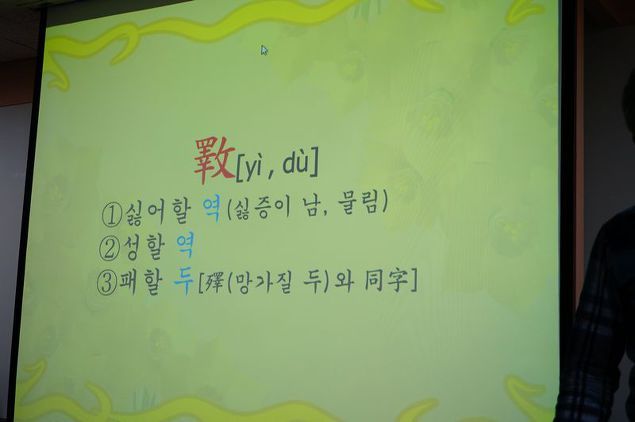 斁[yì, dù]
①싫어할 역(싫증이 남, 물림)
②성할 역
③패할 두[殬(망가질 두)와 同字]